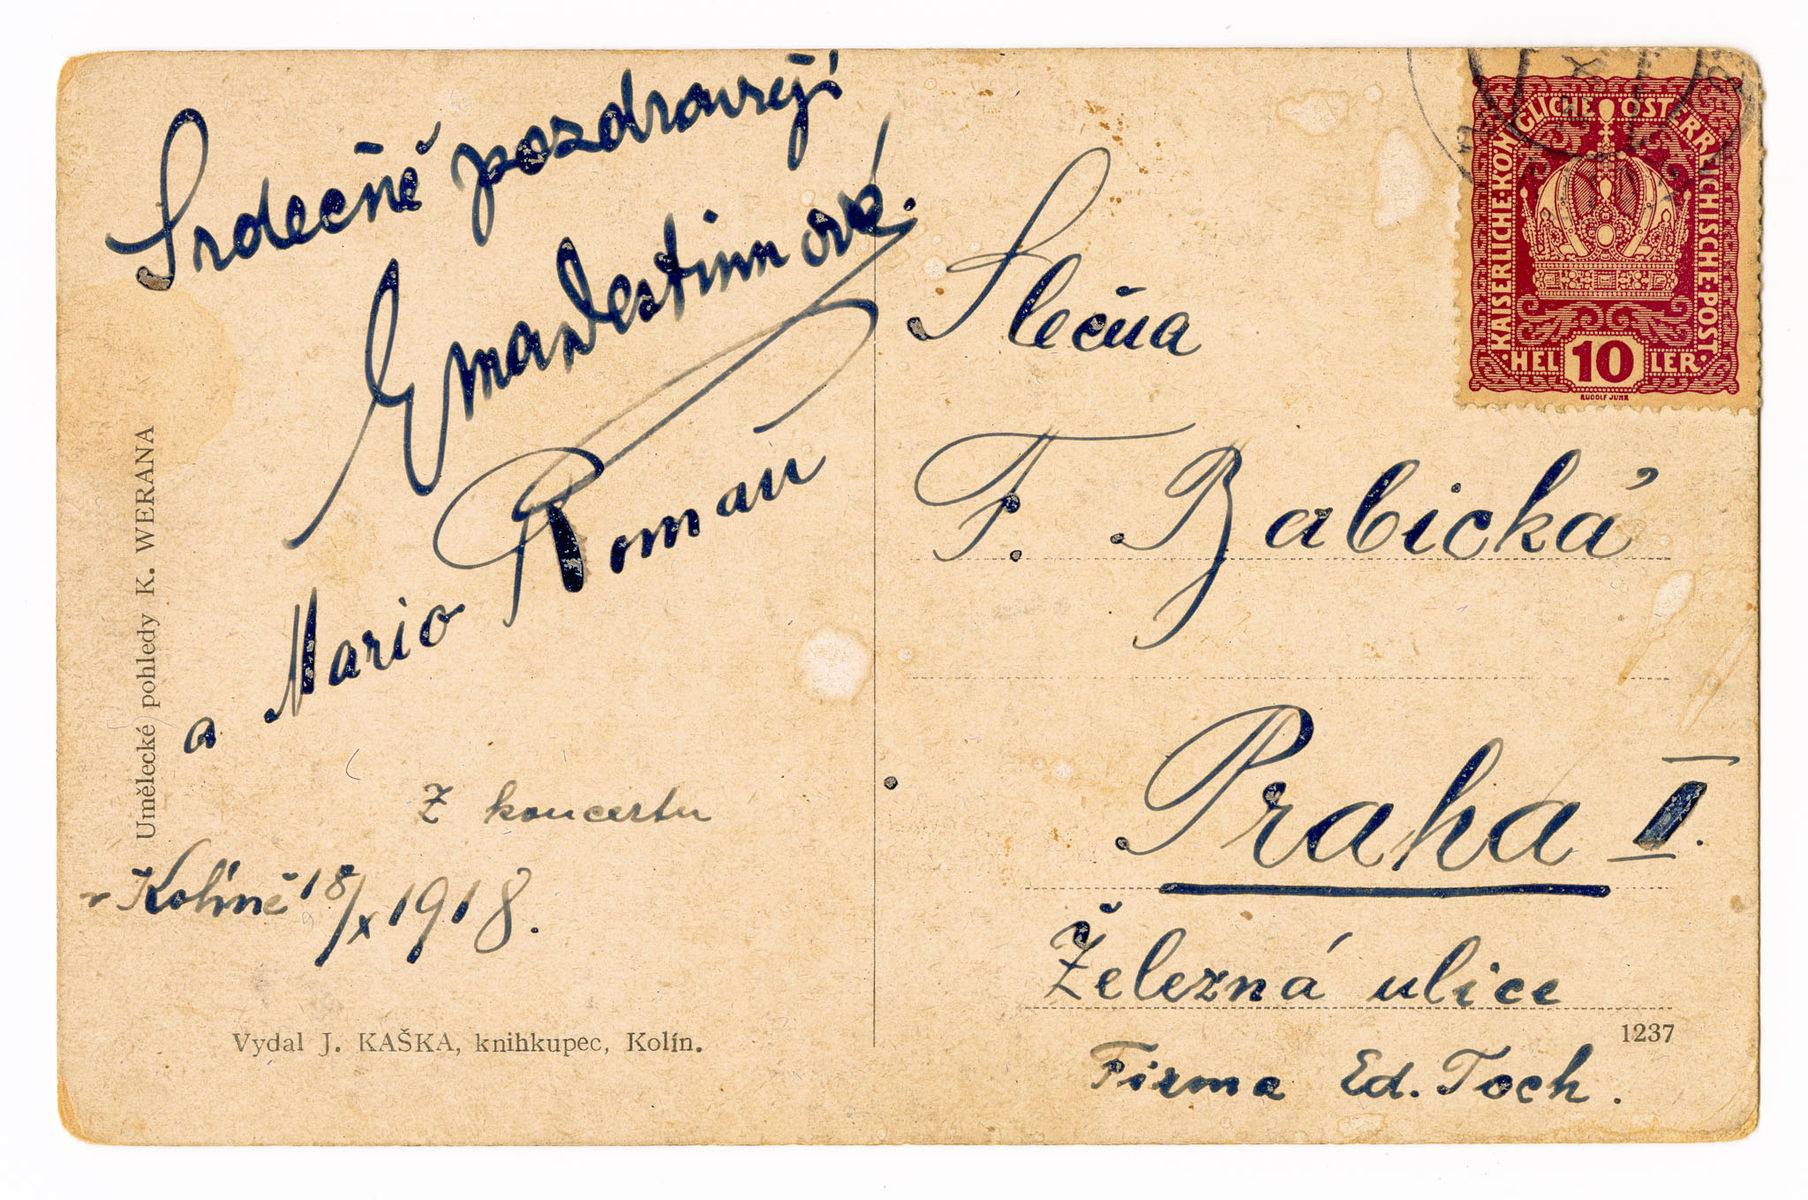 Srdečně pozdravují
Ema Destinnová.
a Mario Román
Z koncertu
v Kolíně 18/X 1918.
Umělecké pohledy K. WERANA
Vydal J. KAŠKA, knihkupec, Kolín.
KAISERLICHE·KÖNIGLICHE ÖSTERREICHISCHE·POST
HEL 10 LER
RUDOLF JUNK
Slečna
F. Babická
Praha I.
Železná ulice
1237
Firma Ed. Toch.